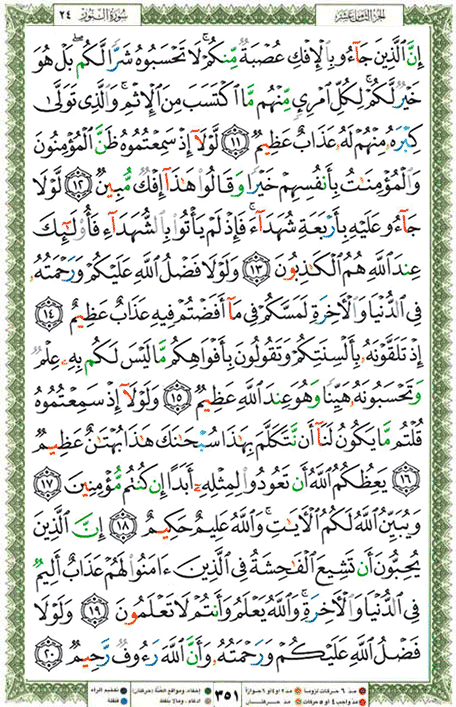 الجزء الثامن عشر
سورة النور ٢٤
إِنَّ الَّذِينَ جَاءُو بِالْإِفْكِ عُصْبَةٌ مِّنكُمْ ۚ لَا تَحْسَبُوهُ شَرًّا لَّكُم ۖ بَلْ هُوَ
خَيْرٌ لَّكُمْ ۚ لِكُلِّ امْرِئٍ مِّنْهُم مَّا اكْتَسَبَ مِنَ الْإِثْمِ ۚ وَالَّذِي تَوَلَّىٰ
كِبْرَهُ مِنْهُمْ لَهُ عَذَابٌ عَظِيمٌ ١١ لَّوْلَا إِذْ سَمِعْتُمُوهُ ظَنَّ الْمُؤْمِنُونَ
وَالْمُؤْمِنَاتُ بِأَنفُسِهِمْ خَيْرًا وَقَالُوا هَٰذَا إِفْكٌ مُّبِينٌ ١٢ لَّوْلَا
جَاءُو عَلَيْهِ بِأَرْبَعَةِ شُهَدَاءَ ۚ فَإِذْ لَمْ يَأْتُوا بِالشُّهَدَاءِ فَأُولَٰئِكَ
عِندَ اللَّهِ هُمُ الْكَاذِبُونَ ١٣ وَلَوْلَا فَضْلُ اللَّهِ عَلَيْكُمْ وَرَحْمَتُهُ
فِي الدُّنْيَا وَالْآخِرَةِ لَمَسَّكُمْ فِي مَا أَفَضْتُمْ فِيهِ عَذَابٌ عَظِيمٌ ١٤
إِذْ تَلَقَّوْنَهُ بِأَلْسِنَتِكُمْ وَتَقُولُونَ بِأَفْوَاهِكُم مَّا لَيْسَ لَكُم بِهِ عِلْمٌ
وَتَحْسَبُونَهُ هَيِّنًا وَهُوَ عِندَ اللَّهِ عَظِيمٌ ١٥ وَلَوْلَا إِذْ سَمِعْتُمُوهُ
قُلْتُم مَّا يَكُونُ لَنَا أَن نَّتَكَلَّمَ بِهَٰذَا سُبْحَانَكَ هَٰذَا بُهْتَانٌ عَظِيمٌ
١٦ يَعِظُكُمُ اللَّهُ أَن تَعُودُوا لِمِثْلِهِ أَبَدًا إِن كُنتُم مُّؤْمِنِينَ ١٧
وَيُبَيِّنُ اللَّهُ لَكُمُ الْآيَاتِ ۚ وَاللَّهُ عَلِيمٌ حَكِيمٌ ١٨ إِنَّ الَّذِينَ
يُحِبُّونَ أَن تَشِيعَ الْفَاحِشَةُ فِي الَّذِينَ ءَامَنُوا لَهُمْ عَذَابٌ أَلِيمٌ
فِي الدُّنْيَا وَالْآخِرَةِ ۚ وَاللَّهُ يَعْلَمُ وَأَنتُمْ لَا تَعْلَمُونَ ١٩ وَلَوْلَا
فَضْلُ اللَّهِ عَلَيْكُمْ وَرَحْمَتُهُ وَأَنَّ اللَّهَ رَءُوفٌ رَّحِيمٌ ٢٠
مد ٦ حركات لزوما مد ٢ او ٤ او ٦ جوازا
مد واجب ٤ او ٥ حركات مد حركتان
٣٥١
إخفاء، ومواقع الغنة (حركتان) تفخيم الراء
ادغام، وما لا يلفظ قلقلة